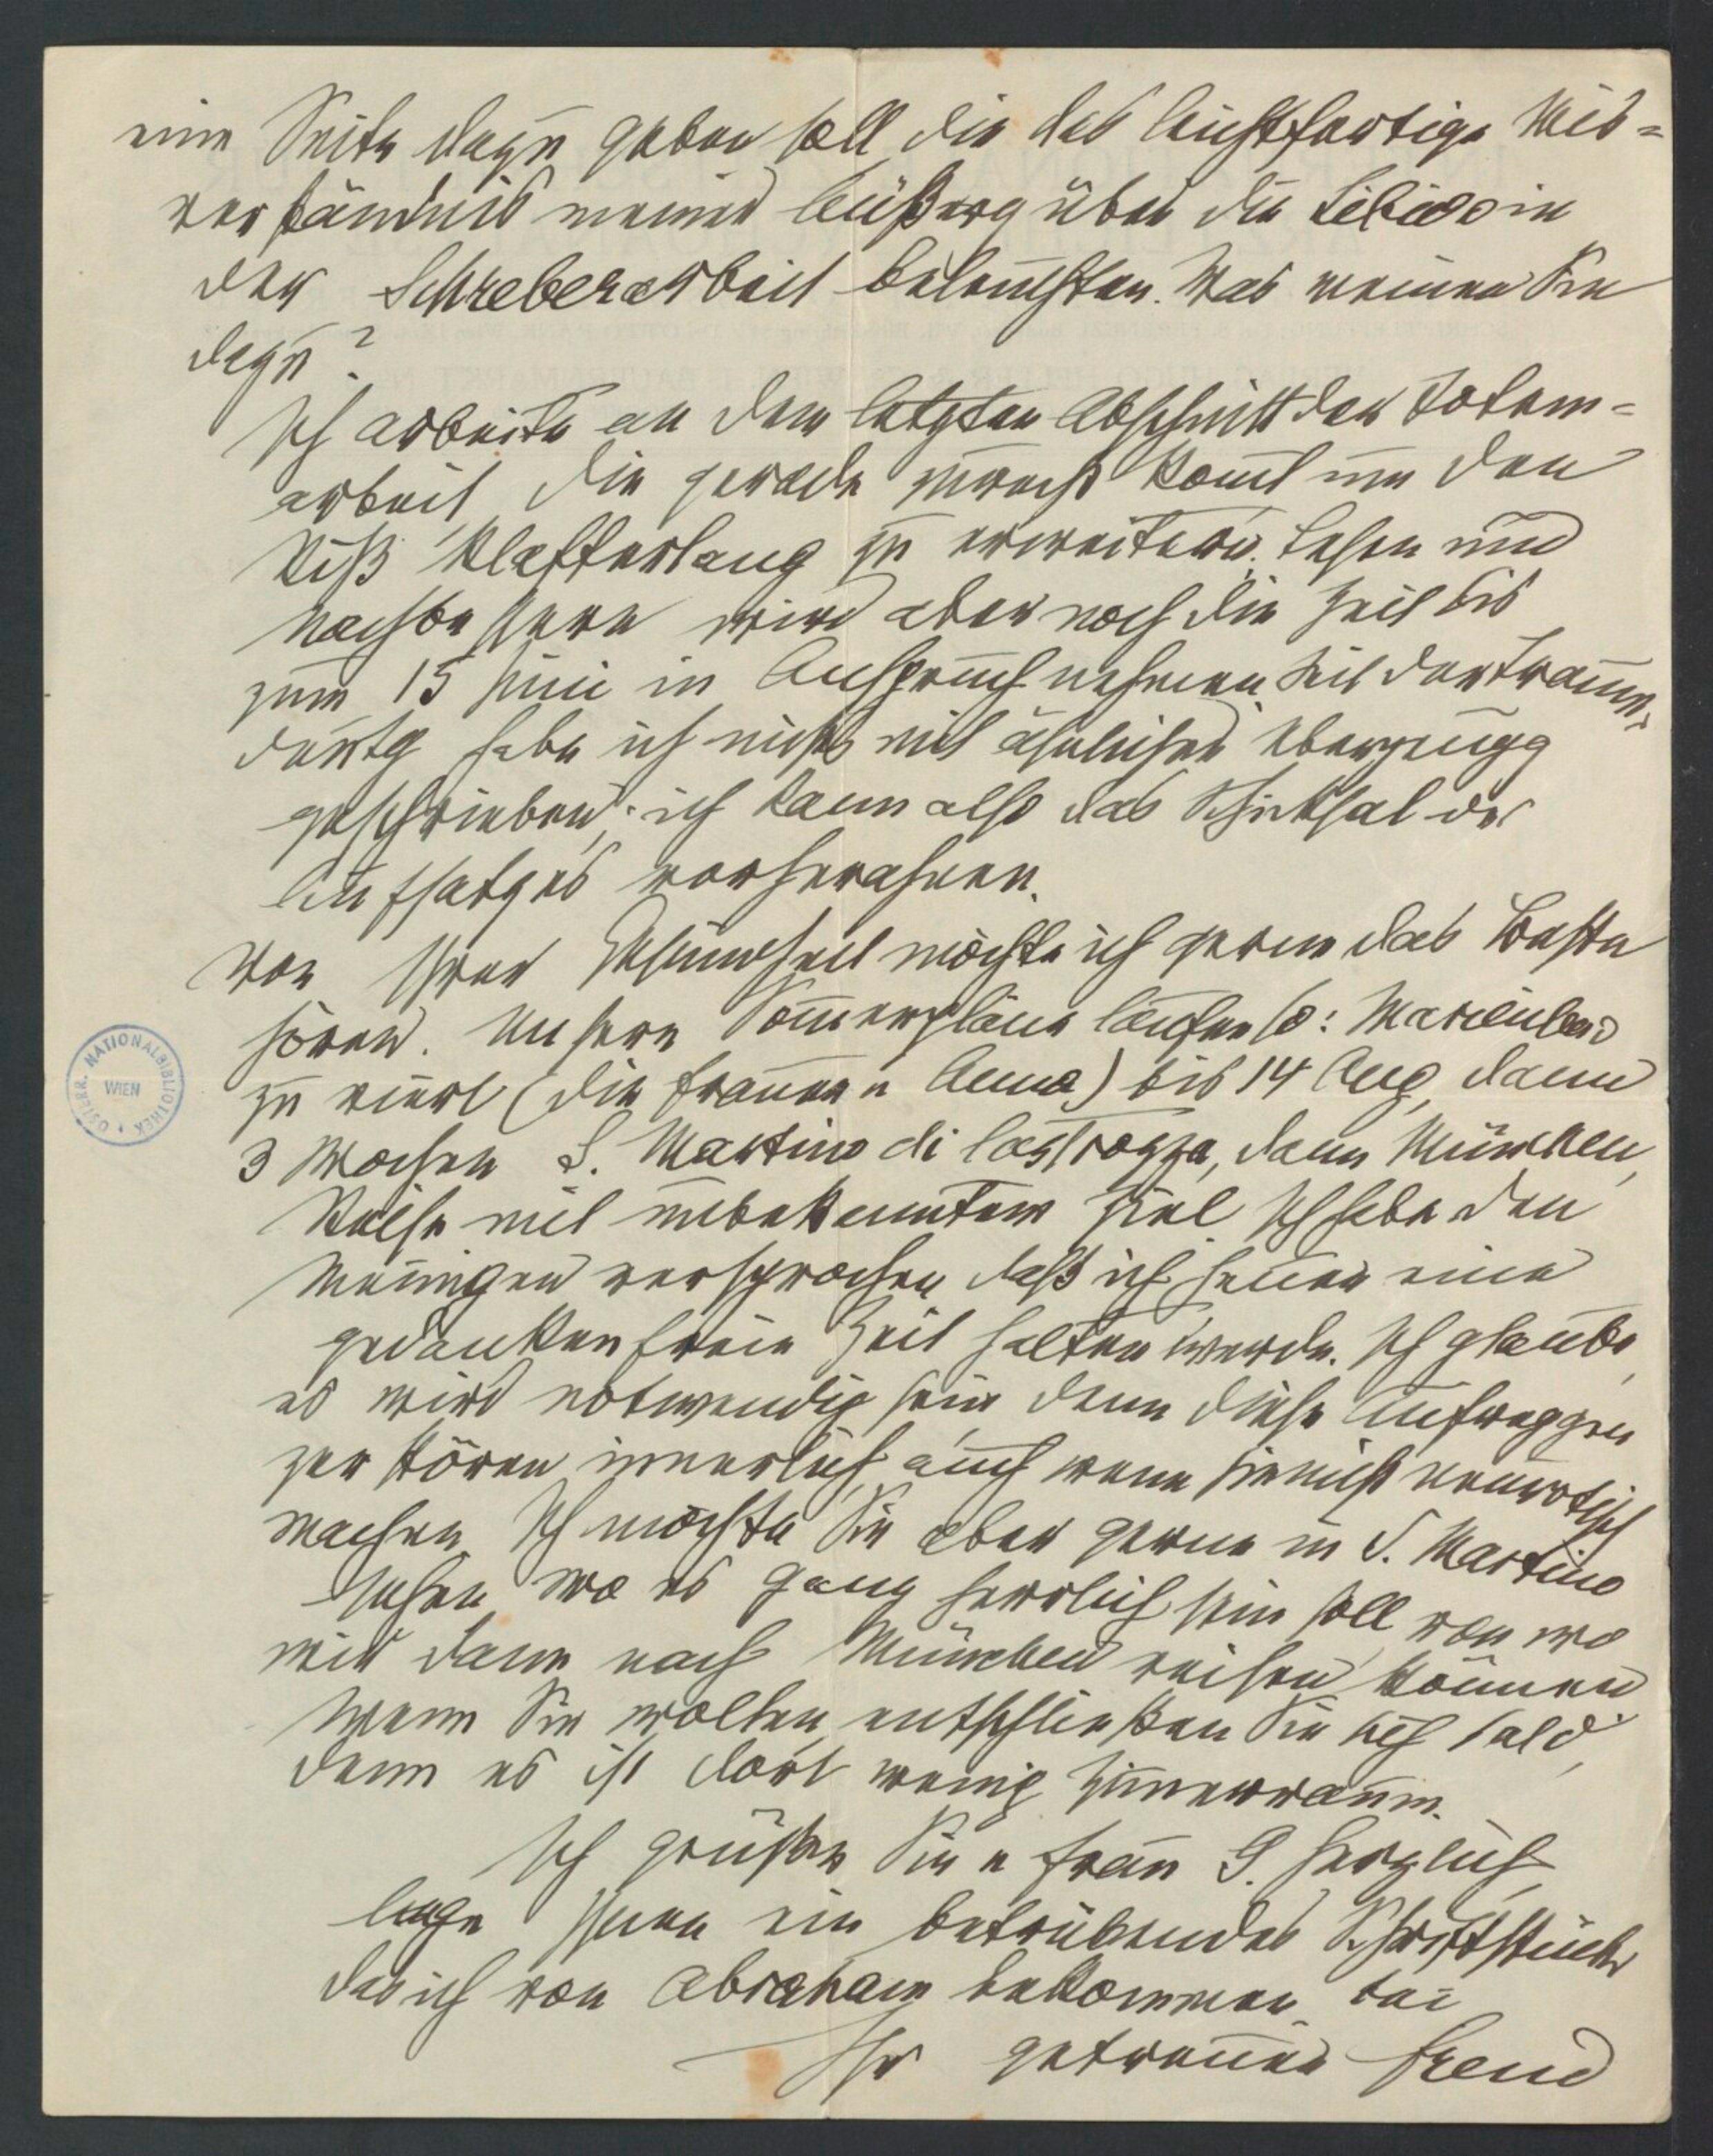 eine Seite dazu geben soll, die das leichtfertige Mis=
verständnis meiner Äußerg über die Libido in
der Schreberarbeit beleuchten. Was meinen Sie
dazu?
Ich arbeite an dem letzten Abschnitt der Totem=
arbeit, die gerade zurecht kom̅t um den
Riß klafterlang zu erweitern. Lesen und
Nachbessern wird aber noch die Zeit bis
zum 15 Juni in Anspruch nehmen. Seit der Traum=
deutg habe ich nichts mit ähnlicher Überzeugg
geschrieben, ich kann also das Schicksal des
Aufsatzes vorherahnen.
Von Ihrer Gesundheit möchte ich gerne das Beste
hören. Unsere Som̅erpläne laufen so: Marienbad
zu viert (die Frauen u Anna) bis 14 Aug, dann
3 Wochen S. Martino di Castrozza, dann München,
Reise mit unbekanntem Ziel. Ich habe den
Meinigen versprochen, daß ich heuer eine
gedankenfreie Zeit halten werde. Ich glaube,
es wird notwendig sein, denn diese Aufreggen
zerstören innerlich, auch wenn sie nicht neurotisch
machen. Ich möchte Sie aber gerne in S. Martino
sehen, wo es ganz herrlich sein soll, von wo
wir dann nach München reisen können.
Wenn Sie wollen, entschließen Sie sich bald,
denn es ist dort wenig Zim̅erraum.
Ich grüße Sie u Frau G. herzlich,
lege Ihnen ein betrübendes Schriftstück,
das ich von Abraham bekommen, bei
Ihr getreuer Freud
ÖSTERR. NATIONALBIBLIOTHEK
WIEN